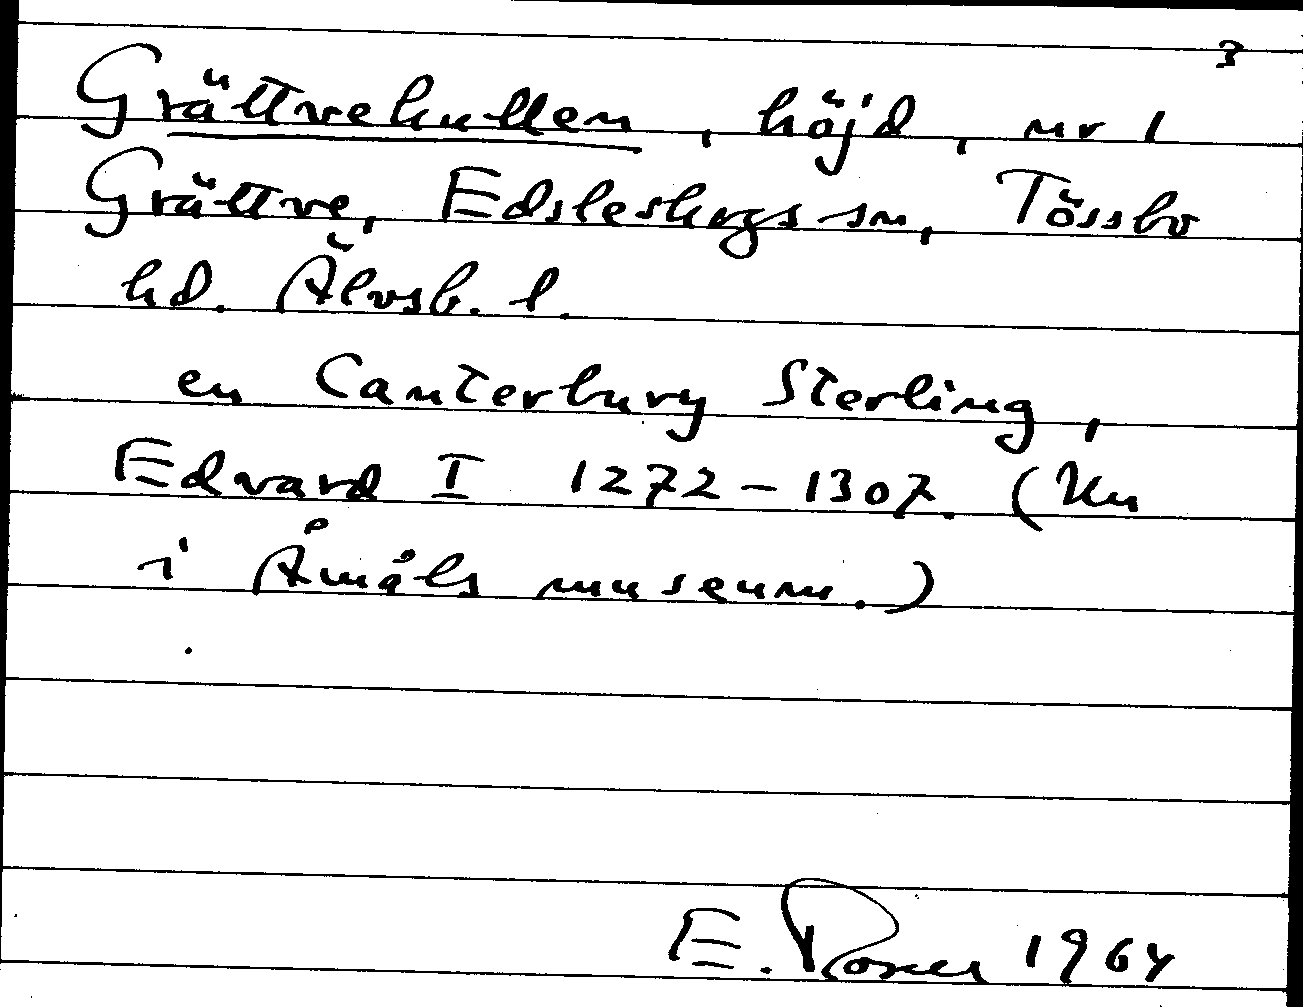 3
Grättvekullen, höjd, nr 1
Grättve, Edsleskogs sn, Tössbo
hd. Älvsb. l.
en Canterbury Sterling,
Edvard I 1272-1307. (Nu
i Åmåls museum.)
E. 1964